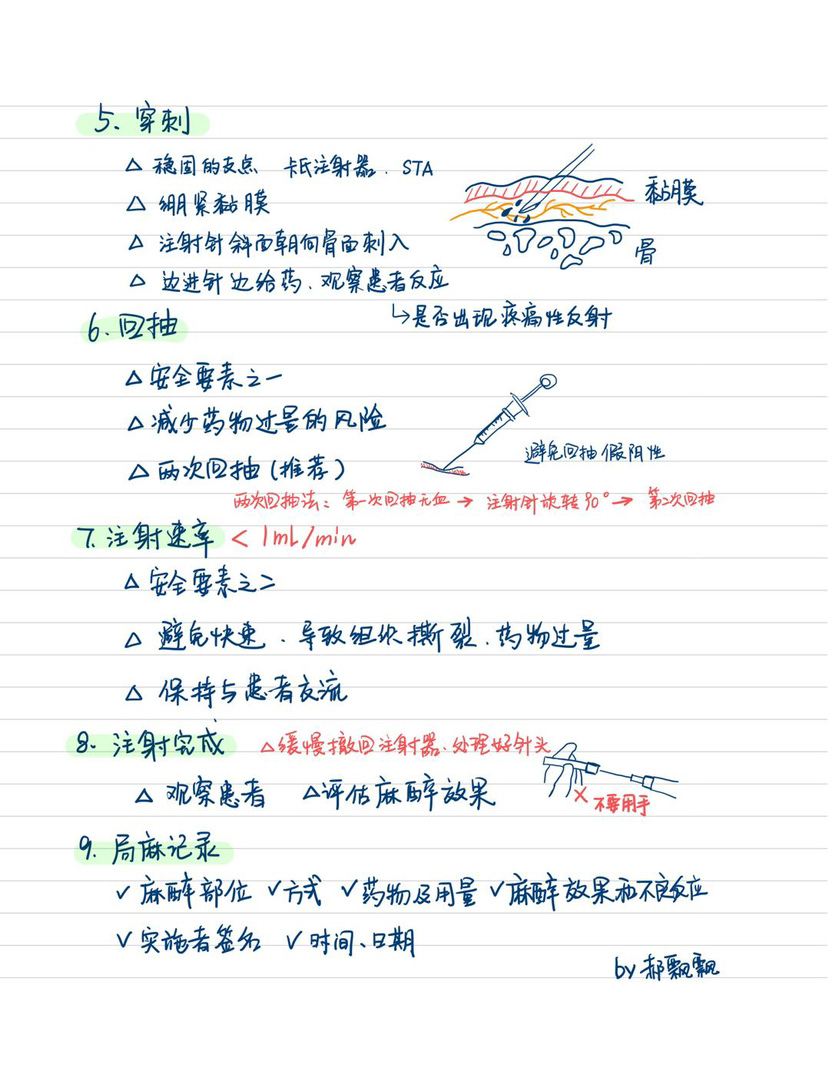 5、穿刺
△ 稳固的支点 卡氏注射器、STA
△ 绷紧黏膜
黏膜
△ 注射针斜面朝向骨面刺入
骨
△ 边进针边给药、观察患者反应
↳是否出现疼痛性反射
6、回抽
△安全要素之一
△减少药物过量的风险
避免回抽假阴性
△两次回抽(推荐)
两次回抽法：第一次回抽无血 → 注射针旋转90° → 第二次回抽
7、注射速率 < 1mL/min
△安全要素之二
△ 避免快速、导致组织撕裂、药物过量
△ 保持与患者交流
8、注射完成 △缓慢撤回注射器、处理好针头
△ 观察患者 △评估麻醉效果
× 不要用手
9、局麻记录
✓麻醉部位 ✓方式 ✓药物及用量 ✓麻醉效果和不良反应
✓实施者签名 ✓时间、日期
by 郝飘飘